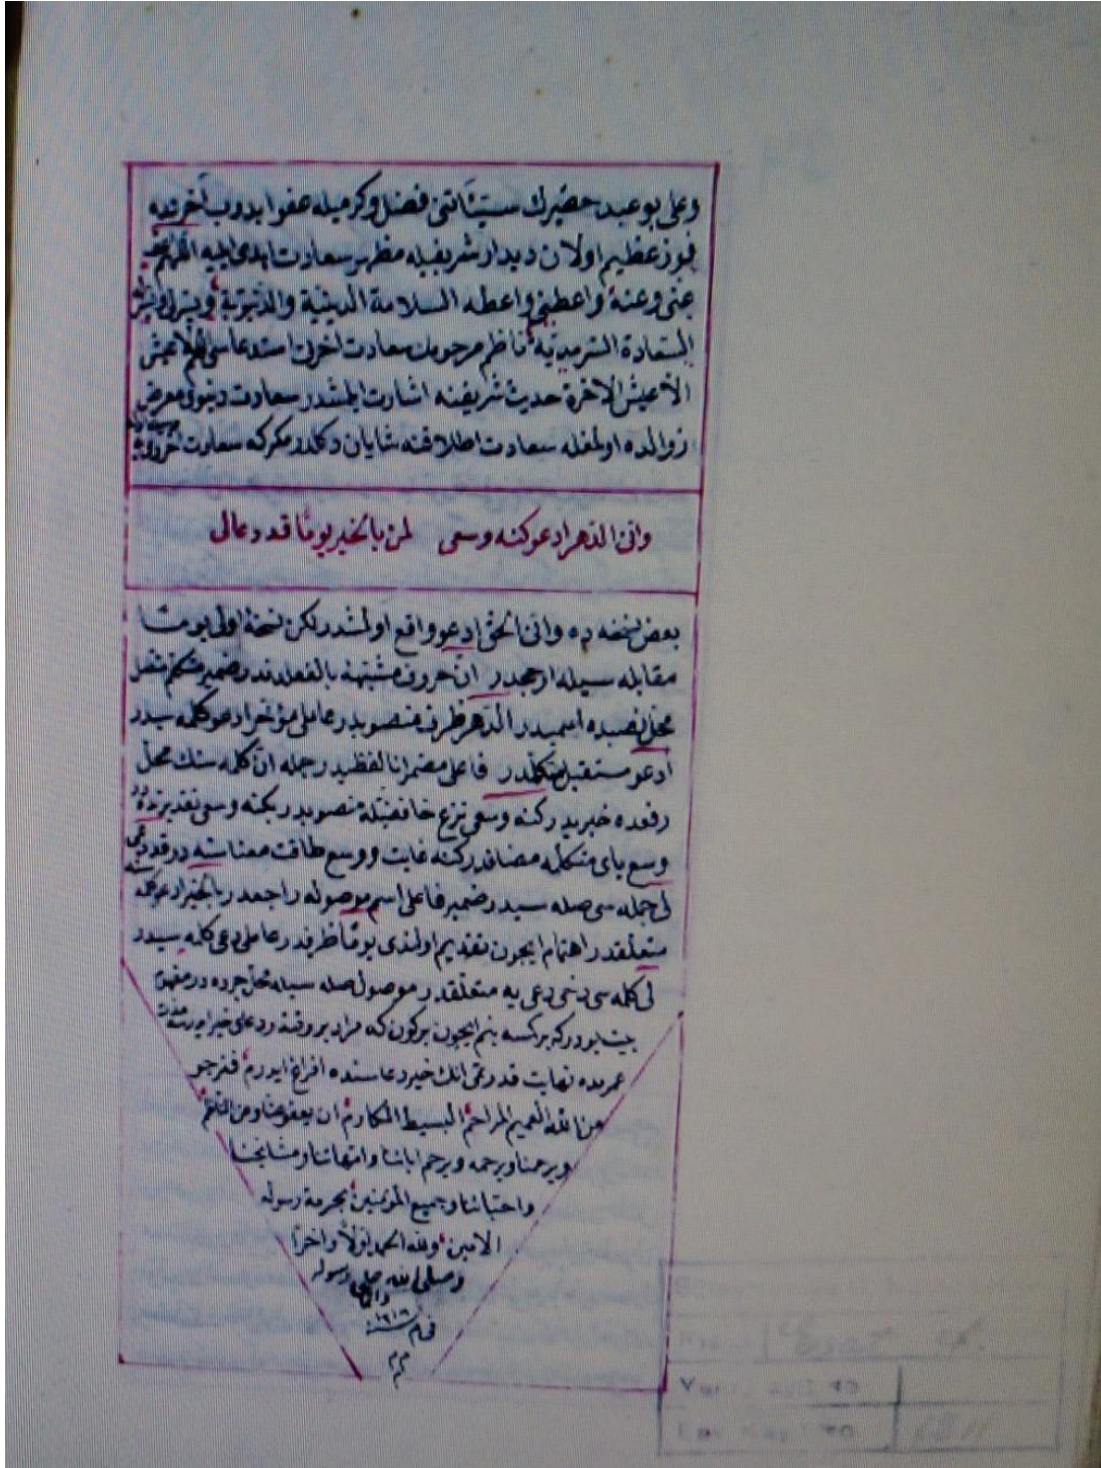 وعلى بو عبد حقيرك سيئاتنى فضل وكرميله عفو ايدوب آخرتده
فوز عظيم اولان ديدار شريفيله مظهر سعادت ابدى ايليه اللهم
عنى وعنه واعطنى واعطه السلامة الدينية والدنيوية
السعادة السرمدية ناظم مرحومك سعادت اخروى استدعاسى عيش
الا عيش الاخرة حديث شريفنه اشارت ايلمشدر سعادت دنيوى معرض
زوالده اولمغله سعادت اطلاقنه شايان دكلدر مكركه سعادت اخرويه
وانى الدهر ادعو كنه وسعى لمن بالخير يوما قد دعا لى
بعض نسخه ده وانى الحق ادعو واقع اولمشدر لكن نسخۀ اولى يوما
مقابله سيله ارجحدر ان حروف مشبهة بالفعلدندر ضمير متكلم متصل
محل نصبده اسميدر الدهر ظرف منصوبدر عاملى مؤخر ادعو كلمه سيدر
ادعو مستقبل متكلمدر فاعلى مضمر انا لفظيدر جمله ان كلمه سنك محل
رفعده خبريدر كنه وسعى نزع خافضله منصوبدر بكنه وسعى تقديرنده در
وسع ياى متكلمه مضافدر كنه غايت و وسع طاقت معناسنه در قد دعى
لى جمله سى صله سيدر ضمير فاعلى اسم موصوله راجعدر بالخير ادعو كلمه سنه
متعلقدر اهتمام ايچون تقديم اولندى يوما ظرفدر عاملى دعى كلمه سيدر
لى كلمه سى دخى دعى يه متعلقدر موصول صله سيله محل جرده در مفهوم
بيت بودركه بر كسه بنم ايچون بر كون كه مراد بر وقتده دعاى خير ايدرسه مدت
عمرمده نهايت قدرتمى انك خير دعاسنده افراغ ايدرم فنرجو
من الله العميم المراحم البسيط المكارم ان يعفو عنا وعن الناظم
ويرحمنا ويرحمه ويرحم ابائنا وامهاتنا ومشايخنا
واحبائنا وجميع المؤمنين بحرمة رسوله
الامين ولله الحمد اولا واخرا
وصلى الله على رسوله
واله
فى م سنه ١٢١٦
م م م